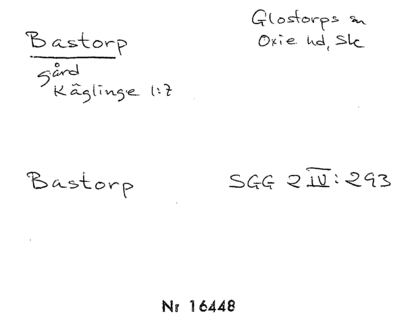 Bastorp
Glostorps sn
Oxie hd, Sk
gård
Käglinge 1:7
Bastorp
SGG 2 IV: 293
Nr 16448